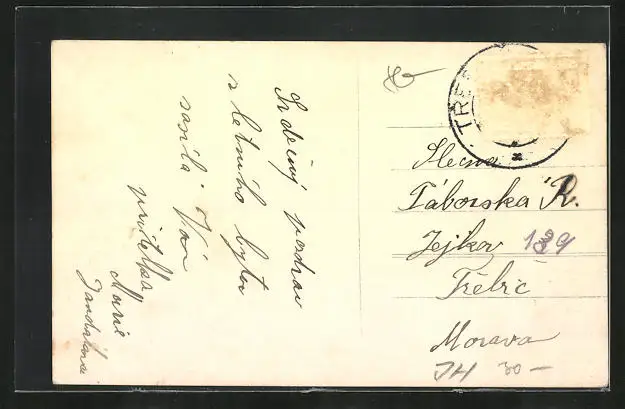 Srdečný pozdrav
z letního bytu
sasílá Vám
přítelkyně
Marie
TŘE
Slečna
Táborska R.
Jejkov 139
Třebíč
Morava
JH 30-